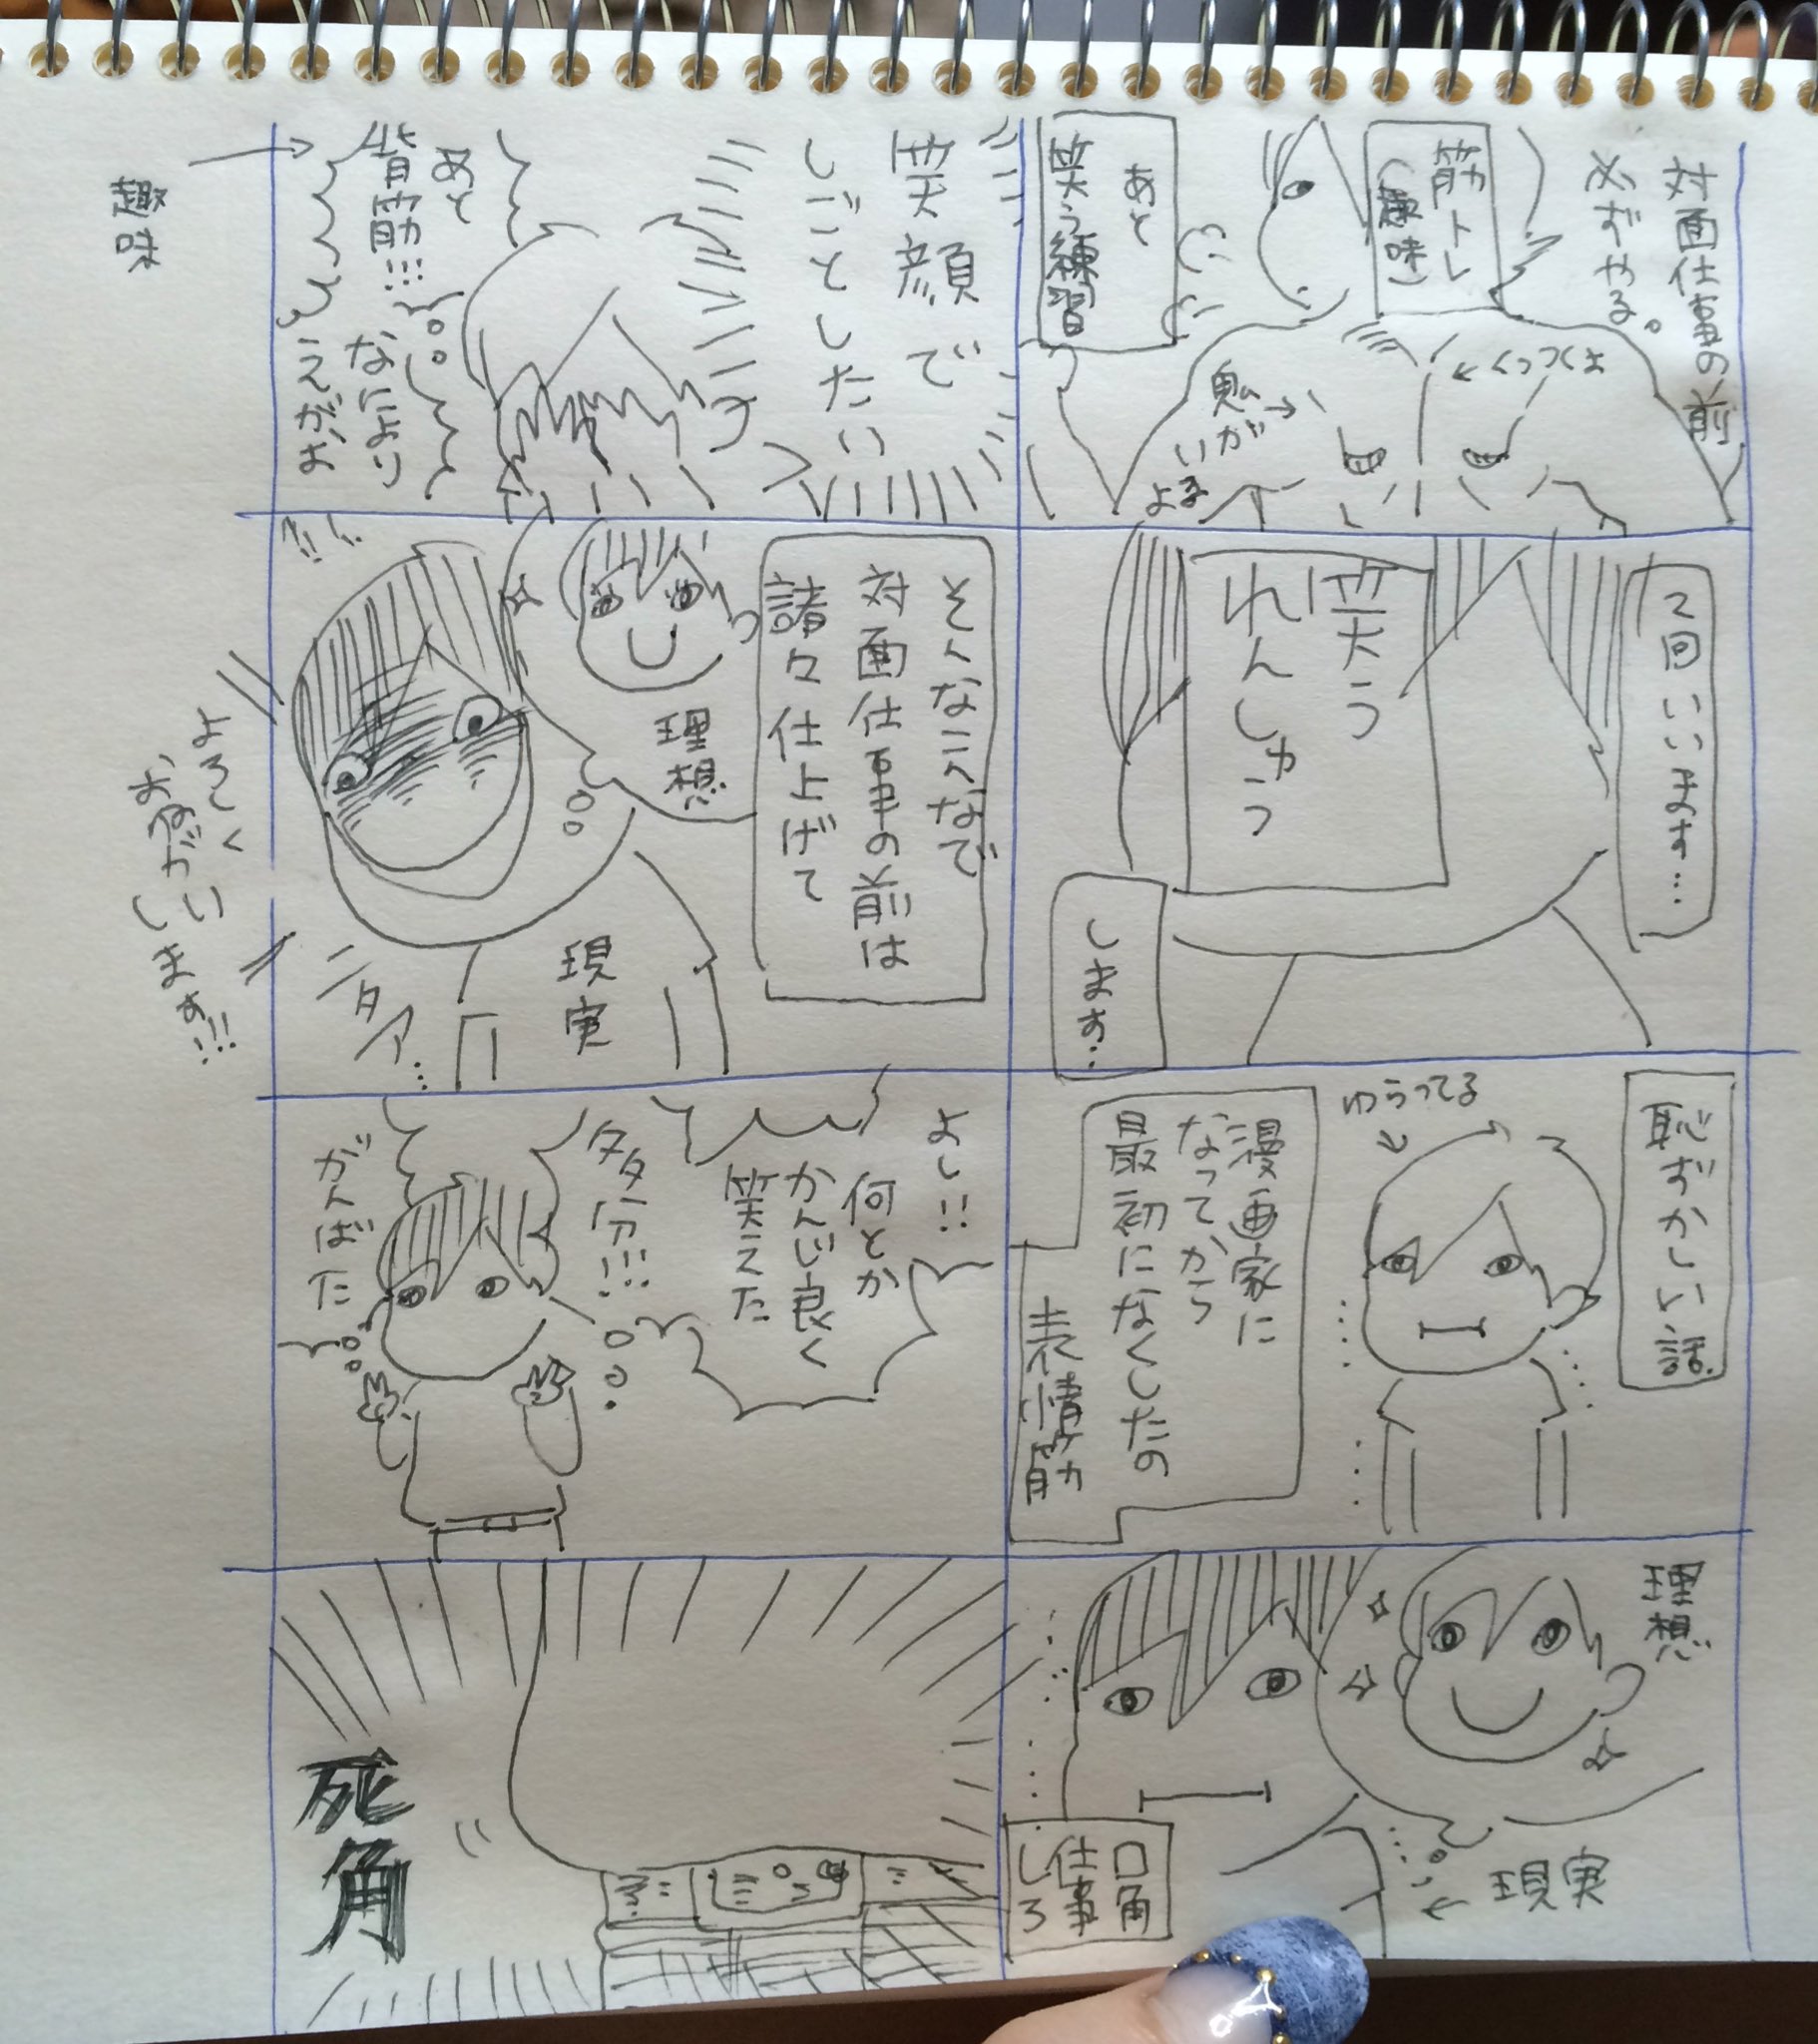 対面仕事の前
必ずやる。
筋トレ
(趣味)
くっつくよ
鬼
がいるよ
あと
笑う練習
2回いいます…
笑う
れんしゅう
します…
恥ずかしい話
ゆらってる
漫画家に
なってから
最初になくしたの
表情筋
理想
現実
口角
仕事
しろ
笑顔で
しごとしたい
あと
背筋!!!
なにより
えがお
趣味
そんなこんなで
対面仕事の前は
諸々仕上げて
理想
現実
ニタァ…
よろしく
おねがい
します!!
よし!!
何とか
かんじ良く
笑えた
多分!!!
がんばた
死角